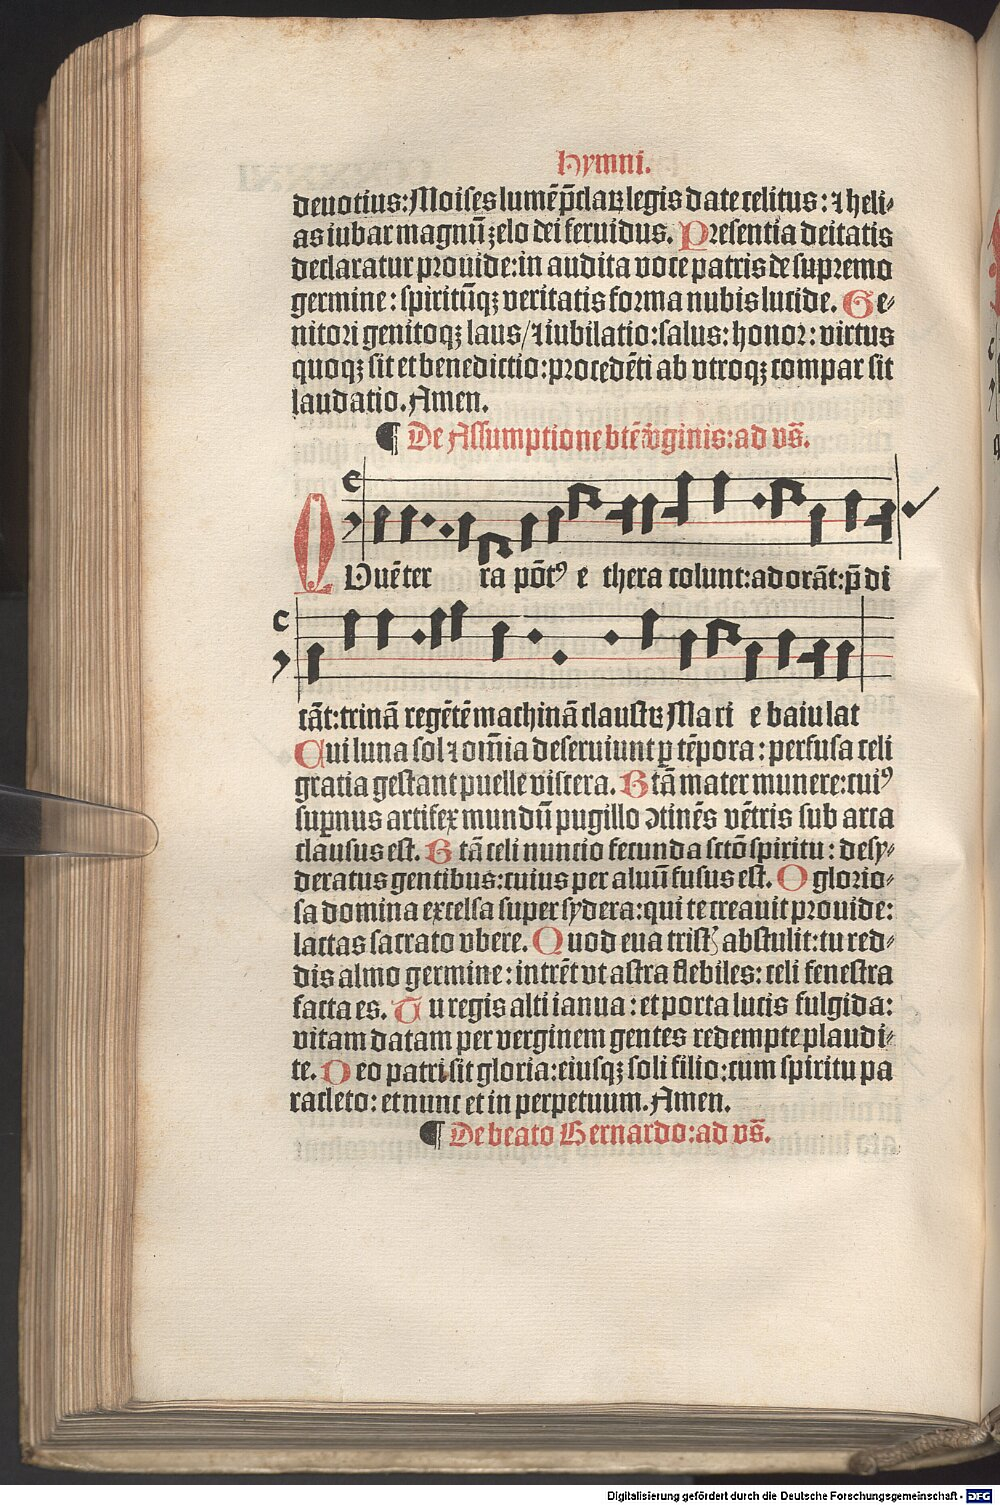 Hymni.
deuotius: Moises lumē p̄claꝝ legis date celitus: ⁊ heli⸗
as iubar magnū zelo dei feruidus. Presentia deitatis
declaratur prouide: in audita voce patris de supremo
germine: spiritūqꝫ veritatis forma nubis lucide. Ge⸗
nitori genitoqꝫ laus/ ⁊ iubilatio: salus: honor: virtus
quoqꝫ sit et benedictio: procedēti ab vtroqꝫ compar sit
laudatio. Amen.
¶ De Assumptione btē v̄ginis: ad vs̄.
QUē ter ra pōtꝰ e thera colunt: adorāt: p̄di
cāt: trinā regētē machinā claustꝝ Mari e baiulat
Cui luna sol ⁊ om̄ia deseruiunt ꝑ tēpora: perfusa celi
gratia gestant puelle viscera. Btā mater munere: cuiꝰ
suꝑnus artifex mundū pugillo ꝯtinēs vētris sub arca
clausus est. Btā celi nuncio fecunda sctō spiritu: desy⸗
deratus gentibus: cuius per aluū fusus est. O glorio⸗
sa domina excelsa super sydera: qui te creauit prouide:
lactas sacrato vbere. Quod eua tristꝭ abstulit: tu red⸗
dis almo germine: intrēt vt astra flebiles: celi fenestra
facta es. Tu regis alti ianua: et porta lucis fulgida:
vitam datam per verginem gentes redempte plaudi⸗
te. Deo patri sit gloria: eiusqꝫ soli filio: cum spiritu pa
racleto: et nunc et in perpetuum. Amen.
¶ De beato Bernardo: ad vs̄.
Digitalisierung gefördert durch die Deutsche Forschungsgemeinschaft - DFG